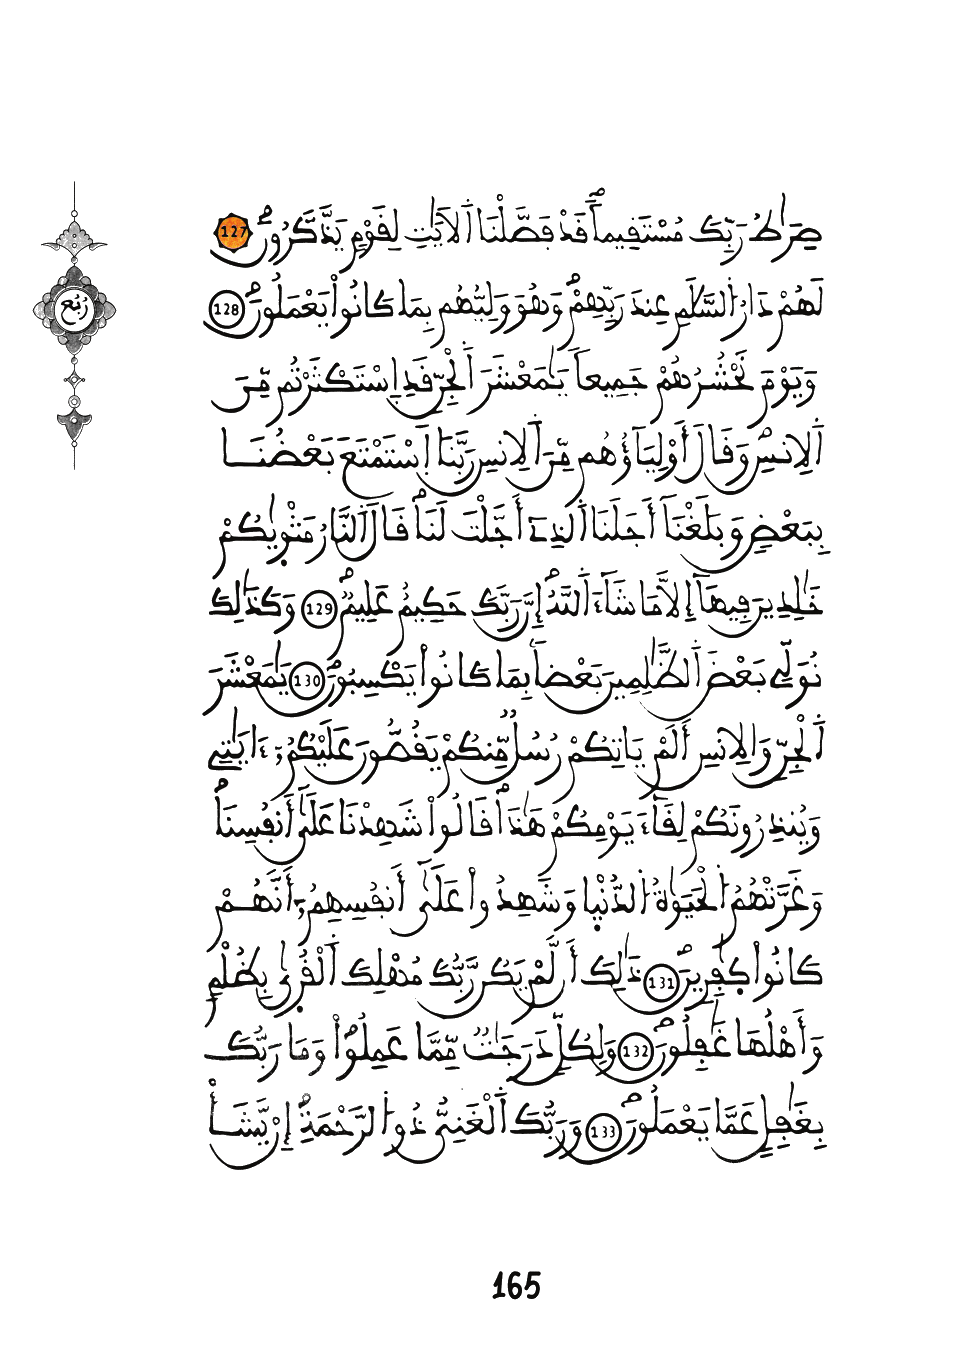 صِرَٰطُ رَبِّكَ مُسْتَقِيماًۖ قَدْ فَصَّلْنَا اَ۬لَايَٰتِ لِقَوْمٖ يَذَّكَّرُونَۖ 127
لَهُمْ دَارُ اُ۬لسَّلَٰمِ عِندَ رَبِّهِمْۖ وَهُوَ وَلِيُّهُم بِمَا كَانُواْ يَعْمَلُونَۖ 128
وَيَوْمَ نَحْشُرُهُمْ جَمِيعاٗ يَٰمَعْشَرَ اَ۬لْجِنِّ قَدِ اِ۪سْتَكْثَرْتُم مِّنَ
اَ۬لِانسِۖ وَقَالَ أَوْلِيَآؤُهُم مِّنَ اَ۬لِانسِ رَبَّنَا اَ۪سْتَمْتَعَ بَعْضُنَا
بِبَعْضٖ وَبَلَغْنَآ أَجَلَنَا اَ۬لذِےٓ أَجَّلْتَ لَنَاۖ قَالَ اَ۬لنَّارُ مَثْو۪يٰكُمْ
خَٰلِدِينَ فِيهَآ إِلَّا مَا شَآءَ اَ۬للَّهُۖ إِنَّ رَبَّكَ حَكِيمٌ عَلِيمٌۖ 129 وَكَذَٰلِكَ
نُوَلِّے بَعْضَ اَ۬لظَّٰلِمِينَ بَعْضاَۢ بِمَا كَانُواْ يَكْسِبُونَۖ 130 يَٰمَعْشَرَ
اَ۬لْجِنِّ وَالِانسِ أَلَمْ يَاتِكُمْ رُسُلٞ مِّنكُمْ يَقُصُّونَ عَلَيْكُمُۥٓ ءَايَٰتِے
وَيُنذِرُونَكُمْ لِقَآءَ يَوْمِكُمْ هَٰذَاۖ قَالُواْ شَهِدْنَا عَلَيٰٓ أَنفُسِنَاۖ
وَغَرَّتْهُمُ اُ۬لْحَيَوٰةُ اُ۬لدُّنْي۪ا وَشَهِدُواْ عَلَيٰٓ أَنفُسِهِمُۥٓ أَنَّهُمْ
كَانُواْ كٰ۪فِرِينَۖ 131 ذَٰلِكَ أَن لَّمْ يَكُن رَّبُّكَ مُهْلِكَ اَ۬لْقُر۪يٰ بِظُلْمٖ
وَأَهْلُهَا غَٰفِلُونَۖ 132 وَلِكُلّٖ دَرَجَٰتٞ مِّمَّا عَمِلُواْۖ وَمَا رَبُّكَ
بِغَٰفِلٍ عَمَّا يَعْمَلُونَۖ 133 وَرَبُّكَ اَ۬لْغَنِيُّ ذُو اُ۬لرَّحْمَةِۖ إِنْ يَّشَأْ
رُبُع
165